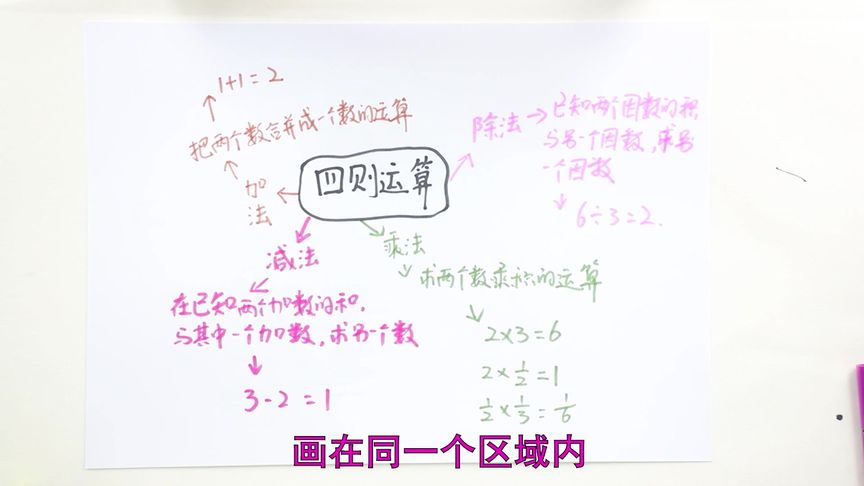 1+1=2
把两个数合并成一个数的运算
加
法
四则运算
除法
已知两个因数的积
与另一个因数,求另
一个因数
6÷3=2.
减法
在已知两个加数的和,
与其中一个加数,求另一个数
3-2=1
乘法
求两个数乘积的运算
2×3=6
2×1/2=1
1/2×1/3=1/6
画在同一个区域内